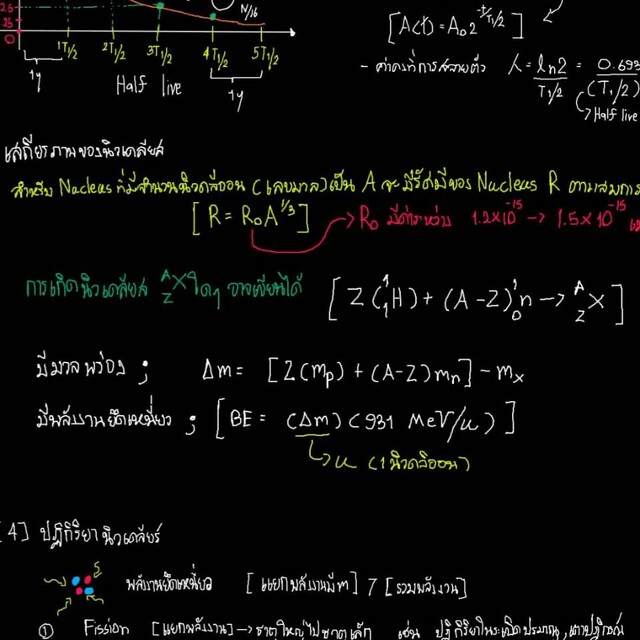 25
0
N/16
1T1/2 2T1/2 3T1/2 4T1/2 5T1/2
1y Half live 1y
[A(t) = A₀2^(-t/T1/2)]
- ค่าคงที่การสลายตัว λ = ln2/T1/2 = 0.693/(T1/2)
Half live
เสถียรภาพของนิวเคลียส
สำหรับ Nucleus ที่มีจำนวนนิวคลีออน (เลขมวล) เป็น A จะมีรัศมีของ Nucleus R ตามสมการ
[R = R₀A^(1/3)] → R₀ มีค่าระหว่าง 1.2×10⁻¹⁵ → 1.5×10⁻¹⁵
การเกิดนิวเคลียส ᴬ_Z X ใดๆ อาจเขียนได้ [Z(¹₁H) + (A-Z)¹₀n → ᴬ_Z X]
มีมวลพร่อง ; Δm = [Z(mp) + (A-Z)mn] - mx
มีพลังงานยึดเหนี่ยว ; [BE = (Δm)(931 MeV/u)]
u (1นิวคลีออน)
[4] ปฏิกิริยานิวเคลียร์
พลังงานยึดเหนี่ยว [แยกพลังงานมีค่า] 7 [รวมพลังงาน]
① Fission [แยกพลังงาน] → ธาตุใหญ่ไปธาตุเล็ก เช่น ปฏิกิริยาในระเบิดปรมาณู, เตาปฏิกรณ์